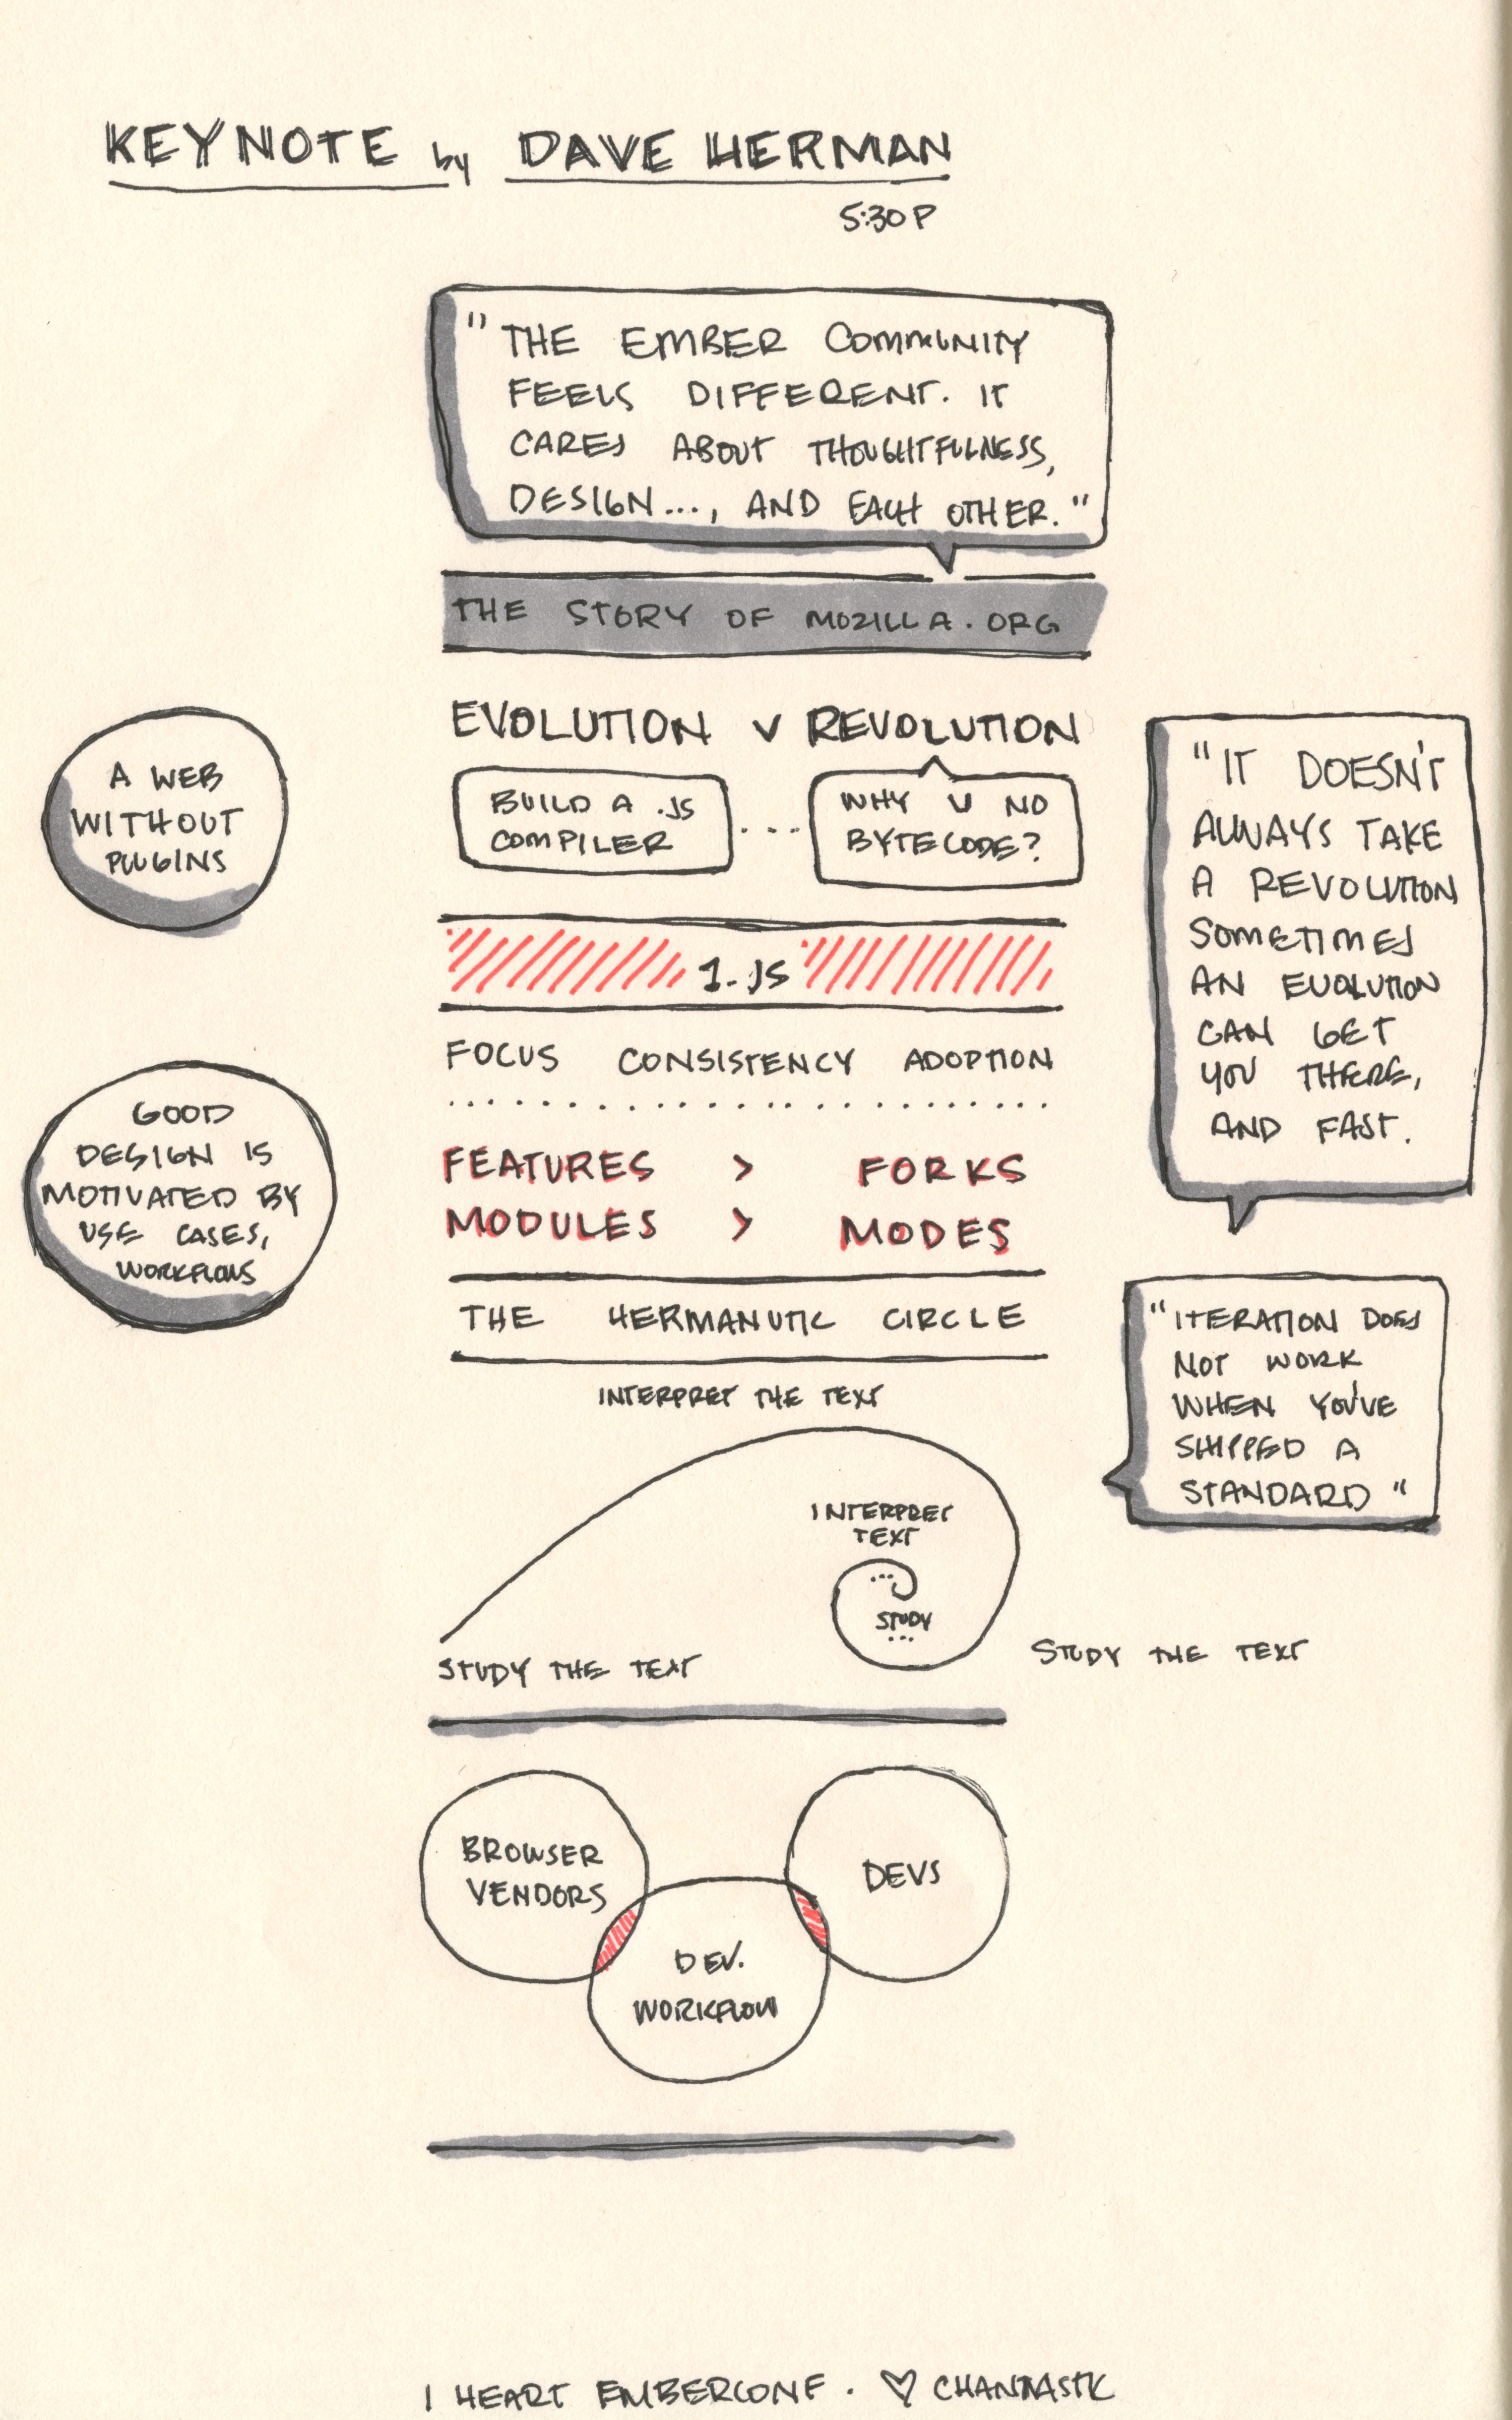 KEYNOTE by DAVE HERMAN
5:30P
"THE EMBER COMMUNITY
FEELS DIFFERENT. IT
CARES ABOUT THOUGHTFULNESS,
DESIGN..., AND EACH OTHER."
THE STORY OF MOZILLA.ORG
EVOLUTION V REVOLUTION
BUILD A .JS
COMPILER
...
WHY U NO
BYTECODE?
A WEB
WITHOUT
PLUGINS
"IT DOESN'T
ALWAYS TAKE
A REVOLUTION
SOMETIMES
AN EVOLUTION
CAN GET
YOU THERE,
AND FAST.
1.JS
FOCUS CONSISTENCY ADOPTION
FEATURES > FORKS
MODULES > MODES
GOOD
DESIGN IS
MOTIVATED BY
USE CASES,
WORKFLOWS
THE HERMANUTIC CIRCLE
"ITERATION DOES
NOT WORK
WHEN YOU'VE
SHIPPED A
STANDARD"
INTERPRET THE TEXT
INTERPRET
TEXT
...
STUDY
...
STUDY THE TEXT
STUDY THE TEXT
BROWSER
VENDORS
DEVS
DEV.
WORKFLOW
I HEART EMBERCONF. ♡ CHANTASTIC